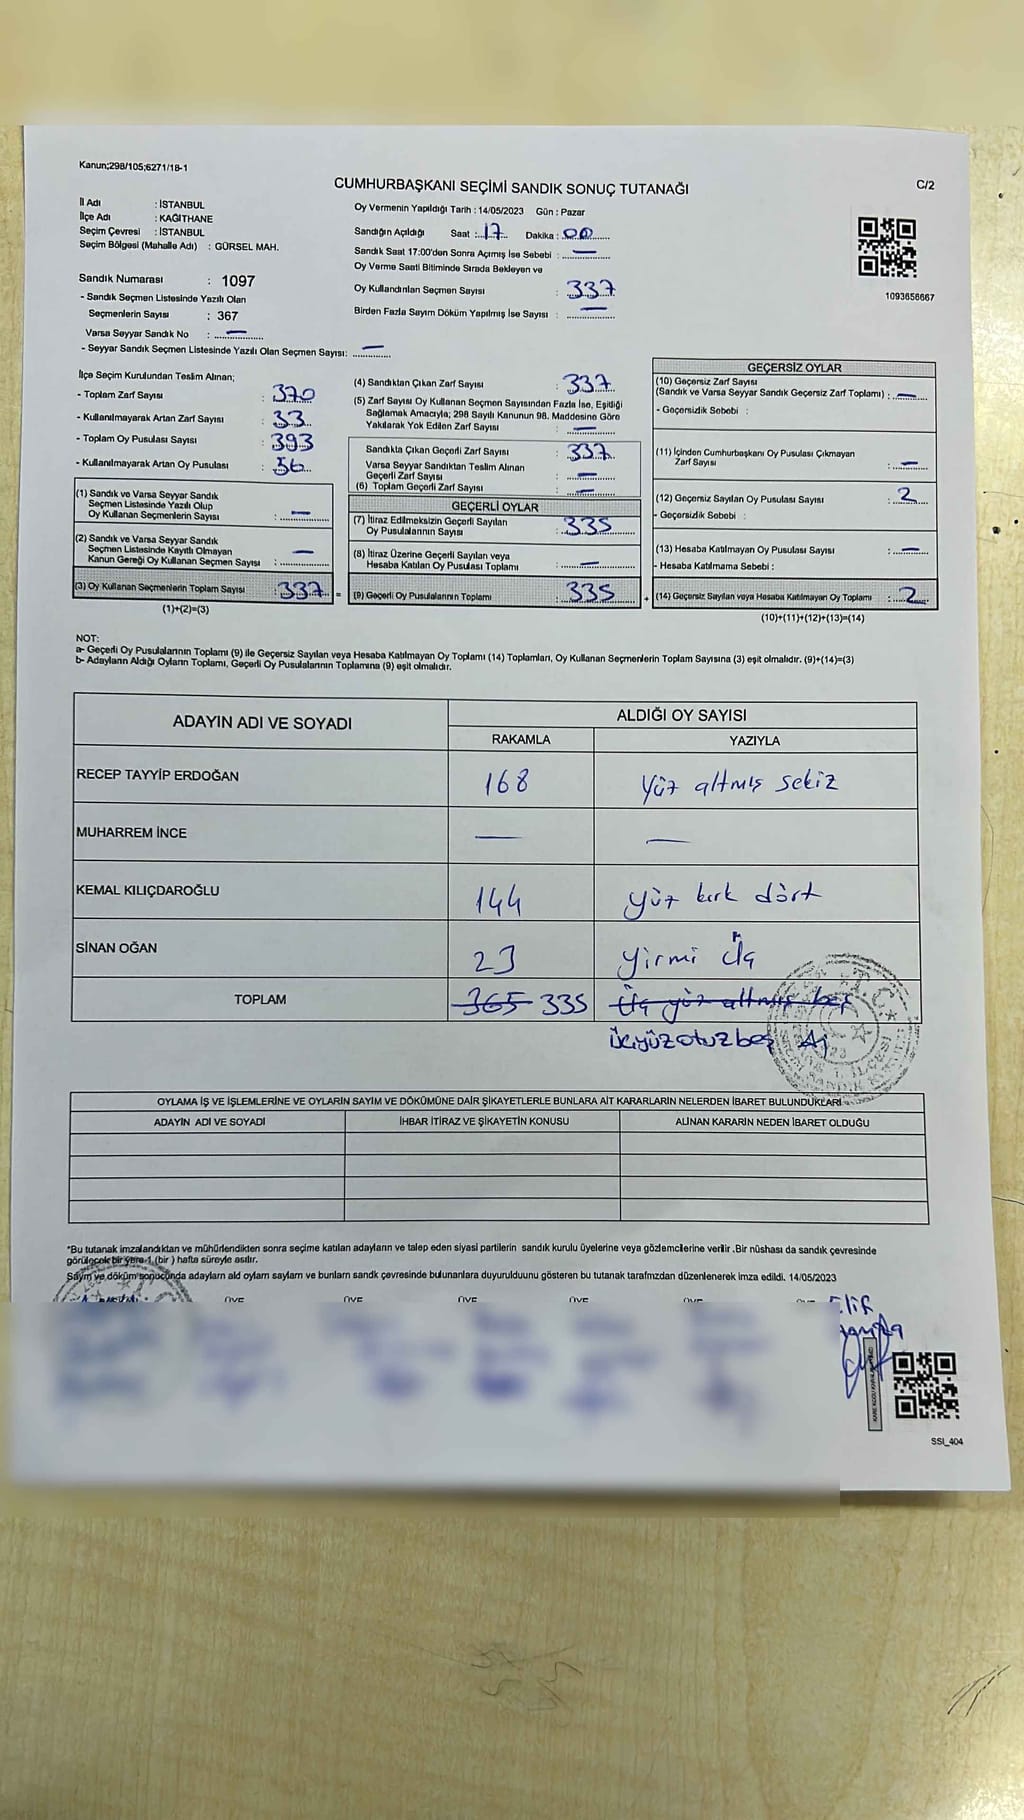 Kanun;298/105;6271/18-1
CUMHURBAŞKANI SEÇİMİ SANDIK SONUÇ TUTANAĞI
C/2
İl Adı : İSTANBUL
İlçe Adı : KAĞITHANE
Seçim Çevresi : İSTANBUL
Seçim Bölgesi (Mahalle Adı) : GÜRSEL MAH.
Sandık Numarası : 1097
- Sandık Seçmen Listesinde Yazılı Olan
Seçmenlerin Sayısı : 367
Varsa Seyyar Sandık No : —
- Seyyar Sandık Seçmen Listesinde Yazılı Olan Seçmen Sayısı: —
Oy Vermenin Yapıldığı Tarih : 14/05/2023 Gün : Pazar
Sandığın Açıldığı Saat : 17 Dakika : 00
Sandık Saat 17:00'den Sonra Açımış İse Sebebi : —
Oy Verme Saati Bitiminde Sırada Bekleyen ve
Oy Kullandırılan Seçmen Sayısı : 337
Birden Fazla Sayım Döküm Yapılmış İse Sayısı : —
1093656667
İlçe Seçim Kurulundan Teslim Alınan;
- Toplam Zarf Sayısı : 370
- Kullanılmayarak Artan Zarf Sayısı : 33
- Toplam Oy Pusulası Sayısı : 393
- Kullanılmayarak Artan Oy Pusulası : 56
(1) Sandık ve Varsa Seyyar Sandık
Seçmen Listesinde Yazılı Olup
Oy Kullanan Seçmenlerin Sayısı : —
(2) Sandık ve Varsa Seyyar Sandık
Seçmen Listesinde Kayıtlı Olmayan
Kanun Gereği Oy Kullanan Seçmen Sayısı : —
(3) Oy Kullanan Seçmenlerin Toplam Sayısı : 337 =
(1)+(2)=(3)
(4) Sandıktan Çıkan Zarf Sayısı : 337
(5) Zarf Sayısı Oy Kullanan Seçmen Sayısından Fazla İse, Eşitliği
Sağlamak Amacıyla; 298 Sayılı Kanunun 98. Maddesine Göre
Yakılarak Yok Edilen Zarf Sayısı : —
Sandıkta Çıkan Geçerli Zarf Sayısı : 337
Varsa Seyyar Sandıktan Teslim Alınan
Geçerli Zarf Sayısı : —
(6) Toplam Geçerli Zarf Sayısı : —
GEÇERLİ OYLAR
(7) İtiraz Edilmeksizin Geçerli Sayılan
Oy Pusulalarının Sayısı : 335
(8) İtiraz Üzerine Geçerli Sayılan veya
Hesaba Katılan Oy Pusulası Toplamı : —
(9) Geçerli Oy Pusulalarının Toplamı : 335 +
GEÇERSİZ OYLAR
(10) Geçersiz Zarf Sayısı
(Sandık ve Varsa Seyyar Sandık Geçersiz Zarf Toplamı) : —
- Geçersizlik Sebebi :
(11) İçinden Cumhurbaşkanı Oy Pusulası Çıkmayan
Zarf Sayısı : —
(12) Geçersiz Sayılan Oy Pusulası Sayısı : 2
- Geçersizlik Sebebi :
(13) Hesaba Katılmayan Oy Pusulası Sayısı : —
- Hesaba Katılmama Sebebi :
(14) Geçersiz Sayılan veya Hesaba Katılmayan Oy Toplamı : 2
(10)+(11)+(12)+(13)=(14)
NOT:
a- Geçerli Oy Pusulalarının Toplamı (9) ile Geçersiz Sayılan veya Hesaba Katılmayan Oy Toplamı (14) Toplamları, Oy Kullanan Seçmenlerin Toplam Sayısına (3) eşit olmalıdır. (9)+(14)=(3)
b- Adayların Aldığı Oyların Toplamı, Geçerli Oy Pusulalarının Toplamına (9) eşit olmalıdır.
ADAYIN ADI VE SOYADI
ALDIĞI OY SAYISI
RAKAMLA YAZIYLA
RECEP TAYYİP ERDOĞAN 168 Yüz altmış sekiz
MUHARREM İNCE — —
KEMAL KILIÇDAROĞLU 144 yüz kırk dört
SİNAN OĞAN 23 yirmi üç
TOPLAM 365 335 üç yüz altmış beş
üçyüzotuzbeş
OYLAMA İŞ VE İŞLEMLERİNE VE OYLARIN SAYIM VE DÖKÜMÜNE DAİR ŞİKAYETLERLE BUNLARA AİT KARARLARIN NELERDEN İBARET BULUNDUKLARI
ADAYIN ADI VE SOYADI İHBAR İTİRAZ VE ŞİKAYETİN KONUSU ALINAN KARARIN NEDEN İBARET OLDUĞU
*Bu tutanak imzalandıktan ve mühürlendikten sonra seçime katılan adayların ve talep eden siyasi partilerin sandık kurulu üyelerine veya gözlemcilerine verilir .Bir nüshası da sandık çevresinde
görülecek bir yere 1 (bir ) hafta süreyle asılır.
Sayım ve döküm sonucunda adayların ald oyların sayların ve bunların sandk çevresinde bulunanlara duyurulduunu gösteren bu tutanak tarafmzdan düzenlenerek imza edildi. 14/05/2023
ÜYE ÜYE ÜYE ÜYE ÜYE
Elif
SSI_404